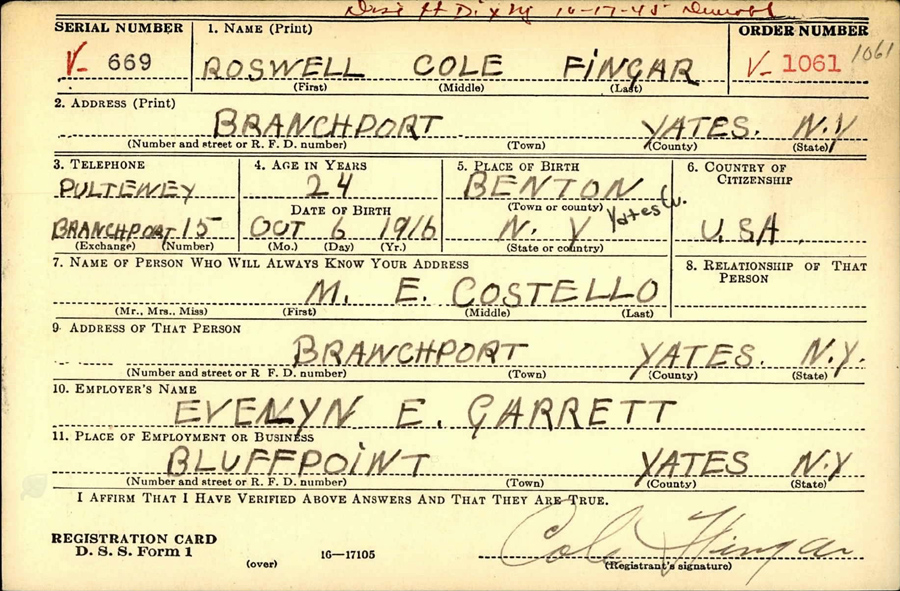 Ft Dix NJ 10-17-45
SERIAL NUMBER 1. NAME (Print) ORDER NUMBER
V- 669 ROSWELL COLE FINGAR V- 1061 1061
(First) (Middle) (Last)
2. ADDRESS (Print)
BRANCHPORT YATES. N.Y
(Number and street or R. F. D. number) (Town) (County) (State)
3. TELEPHONE 4. AGE IN YEARS 5. PLACE OF BIRTH 6. COUNTRY OF CITIZENSHIP
PULTENEY 24 BENTON
DATE OF BIRTH (Town or county) Yates Co.
BRANCHPORT 15 OCT 6 1916 N. Y U.SA.
(Exchange) (Number) (Mo.) (Day) (Yr.) (State or country)
7. NAME OF PERSON WHO WILL ALWAYS KNOW YOUR ADDRESS 8. RELATIONSHIP OF THAT PERSON
M. E. COSTELLO
(Mr., Mrs., Miss) (First) (Middle) (Last)
9. ADDRESS OF THAT PERSON
BRANCHPORT YATES. N.Y.
(Number and street or R. F. D. number) (Town) (County) (State)
10. EMPLOYER'S NAME
EVELYN E. GARRETT
11. PLACE OF EMPLOYMENT OR BUSINESS
BLUFFPOINT YATES N.Y
(Number and street or R. F. D. number) (Town) (County) (State)
I AFFIRM THAT I HAVE VERIFIED ABOVE ANSWERS AND THAT THEY ARE TRUE.
REGISTRATION CARD
D. S. S. Form 1 16—17105 Cole Fingar
(over) (Registrant's signature)